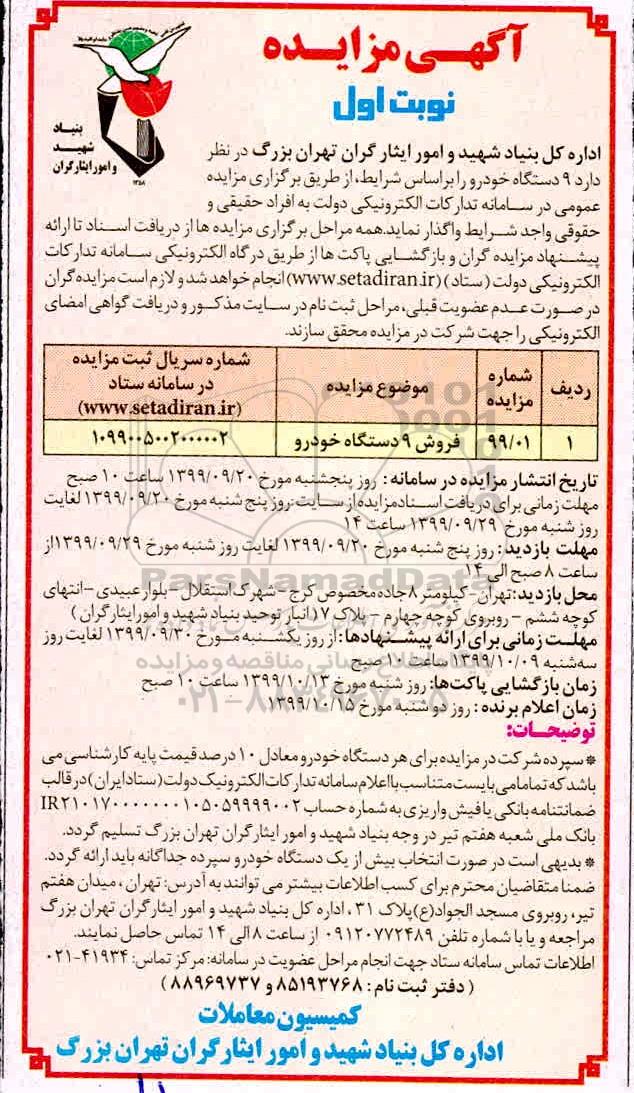 آگهی مزایده
نوبت اول
بنیاد
شهید
و امور ایثارگران
۱۳۵۸
اداره کل بنیاد شهید و امور ایثارگران تهران بزرگ در نظر
دارد ۹ دستگاه خودرو را براساس شرایط، از طریق برگزاری مزایده
عمومی در سامانه تدارکات الکترونیکی دولت به افراد حقیقی و
حقوقی واجد شرایط واگذار نماید. همه مراحل برگزاری مزایده ها از دریافت اسناد تا ارائه
پیشنهاد مزایده گران و بازگشایی پاکت ها از طریق درگاه الکترونیکی سامانه تدارکات
الکترونیکی دولت (ستاد) (www.setadiran.ir) انجام خواهد شد و لازم است مزایده گران
در صورت عدم عضویت قبلی، مراحل ثبت نام در سایت مذکور و دریافت گواهی امضای
الکترونیکی را جهت شرکت در مزایده محقق سازند.
ردیف شماره مزایده موضوع مزایده شماره سریال ثبت مزایده در سامانه ستاد (www.setadiran.ir)
۱ ۹۹/۰۱ فروش ۹ دستگاه خودرو ۱۰۹۹۰۰۵۰۰۲۰۰۰۰۰۲
تاریخ انتشار مزایده در سامانه: روز پنجشنبه مورخ ۱۳۹۹/۰۹/۲۰ ساعت ۱۰ صبح
مهلت زمانی برای دریافت اسناد مزایده از سایت: روز پنج شنبه مورخ ۱۳۹۹/۰۹/۲۰ لغایت
روز شنبه مورخ ۱۳۹۹/۰۹/۲۹ ساعت ۱۴
مهلت بازدید: روز پنج شنبه مورخ ۱۳۹۹/۰۹/۲۰ لغایت روز شنبه مورخ ۱۳۹۹/۰۹/۲۹ از
ساعت ۸ صبح الی ۱۴
محل بازدید: تهران - کیلومتر ۸ جاده مخصوص کرج - شهرک استقلال - بلوار عبیدی - انتهای
کوچه ششم - روبروی کوچه چهارم - پلاک ۱۷ (انبار توحید بنیاد شهید و امور ایثارگران)
مهلت زمانی برای ارائه پیشنهادها: از روز یکشنبه مورخ ۱۳۹۹/۰۹/۳۰ لغایت روز
سه شنبه ۱۳۹۹/۱۰/۰۹ ساعت ۱۰ صبح
زمان بازگشایی پاکت‌ها: روز شنبه مورخ ۱۳۹۹/۱۰/۱۳ ساعت ۱۰ صبح
زمان اعلام برنده: روز دو شنبه مورخ ۱۳۹۹/۱۰/۱۵
توضیحات:
* سپرده شرکت در مزایده برای هر دستگاه خودرو معادل ۱۰ درصد قیمت پایه کارشناسی می
باشد که تمامامی بایست متناسب با اعلام سامانه تدارکات الکترونیک دولت (ستاد ایران) در قالب
ضمانتنامه بانکی یا فیش واریزی به شماره حساب IR۲۱۰۱۷۰۰۰۰۰۰۰۱۰۵۰۵۹۹۹۹۰۰۲
بانک ملی شعبه هفتم تیر در وجه بنیاد شهید و امور ایثارگران تهران بزرگ تسلیم گردد.
* بدیهی است در صورت انتخاب بیش از یک دستگاه خودرو سپرده جداگانه باید ارائه گردد.
ضمنا متقاضیان محترم برای کسب اطلاعات بیشتر می توانند به آدرس: تهران، میدان هفتم
تیر، روبروی مسجد الجواد(ع) پلاک ۳۱، اداره کل بنیاد شهید و امور ایثارگران تهران بزرگ
مراجعه و یا با شماره تلفن ۰۹۱۲۰۷۷۲۴۸۹ از ساعت ۸ الی ۱۴ تماس حاصل نمایند.
اطلاعات تماس سامانه ستاد جهت انجام مراحل عضویت در سامانه: مرکز تماس: ۴۱۹۳۴-۰۲۱
(دفتر ثبت نام: ۸۵۱۹۳۷۶۸ و ۸۸۹۶۹۷۳۷)
کمیسیون معاملات
اداره کل بنیاد شهید و امور ایثارگران تهران بزرگ
ParsNamadData